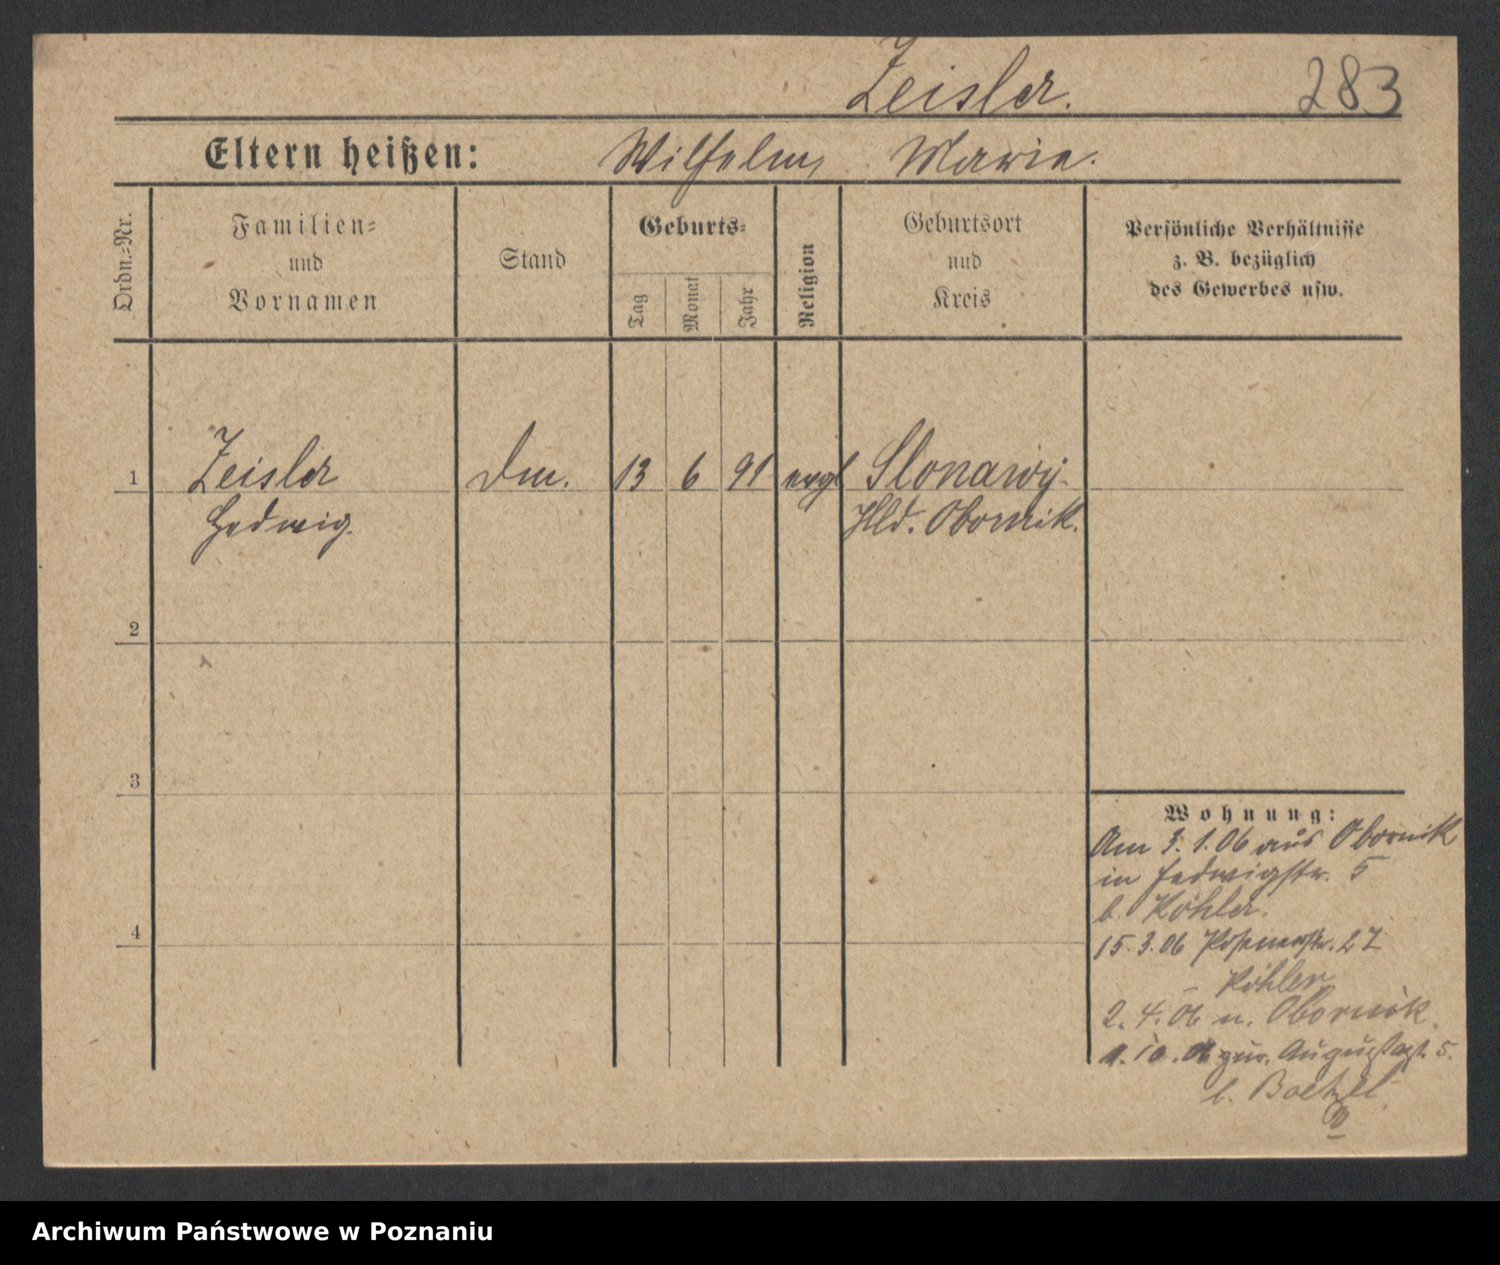 Zeisler.
283
Eltern heißen: Wilhelm Maria.
Ordn.=Nr.
Familien=
und
Vornamen
Stand
Geburts=
Tag
Monat
Jahr
Religion
Geburtsort
und
Kreis
Persönliche Verhältnisse
z. B. bezüglich
des Gewerbes usw.
1 Zeisler Dm. 13 6 91 evgl Slonawy-
Hedwig. Hld. Obornik.
2
3
4
Wohnung:
Am 3. 1. 06 aus Obornik
in Hedwigstr. 5
b. Köhler.
15. 3. 06 Posenerstr. 27
Köhler
2. 4. 06 n. Obornik.
1. 10. 06 zur. Augustastr. 5.
b. Boetzel
Archiwum Państwowe w Poznaniu